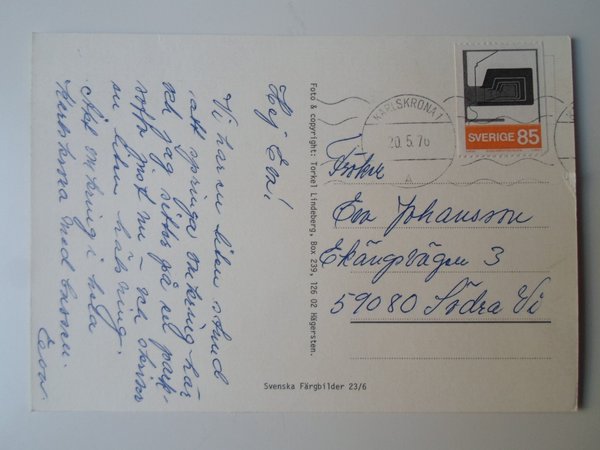 Hej Eva!
Vi har en liten stund
att springa omkring här
och jag sitter på en park-
soffa just nu – och skriver
en liten hälsning.
Allt omkring i hela
Karlskrona med bussen.
Eva
Foto & copyright: Torkel Lindeberg, Box 239, 126 02 Hägersten.
Svenska Färgbilder 23/6
KARLSKRONA 1
20.5.76
A
SVERIGE 85
Fröken
Eva Johansson
Ekängsvägen 3
59080 Södra Vi